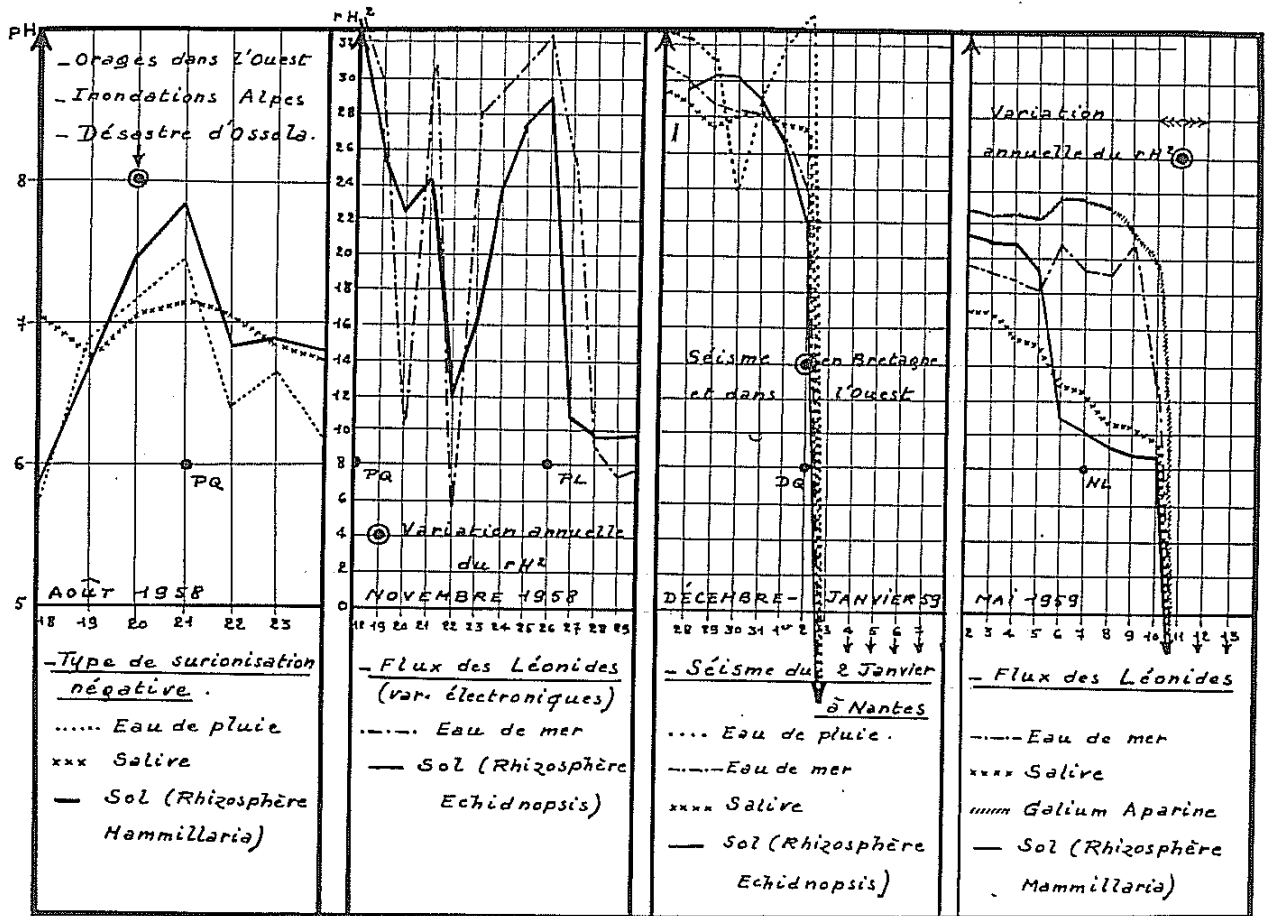 PH
- Orages dans l'Ouest
- Inondations Alpes
- Désastre d'Ossola.
8
7
6
5
PQ
AOÛT 1958
18 19 20 21 22 23
- Type de surionisation
négative.
...... Eau de pluie
xxx Salive
— Sol (Rhizosphère
Hammillaria)
rH²
32
30
28
26
24
22
20
18
16
14
12
10
8
6
4
2
0
PQ
PL
Variation annuelle
du rH²
NOVEMBRE 1958
18 19 20 21 22 23 24 25 26 27 28 29
- Flux des Léonides
(var. électroniques)
—.—.— Eau de mer
— Sol (Rhizosphère
Echidnopsis)
1
Séisme en Bretagne
et dans l'Ouest
DQ
DÉCEMBRE - JANVIER 59
28 29 30 31 1er 2 3 4 5 6 7
- Séisme du 2 Janvier
à Nantes
.... Eau de pluie.
—.—.— Eau de mer
xxxx Salive
— Sol (Rhizosphère
Echidnopsis)
Variation
annuelle du rH²
NL
MAI 1959
2 3 4 5 6 7 8 9 10 11 12 13
- Flux des Léonides
—.—.— Eau de mer
xxxx Salive
Galium Aparine
— Sol (Rhizosphère
Mammillaria)